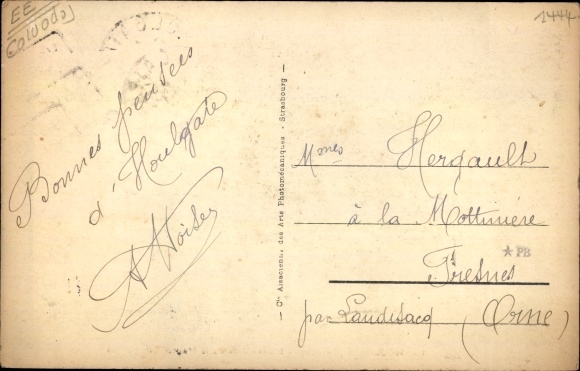 EE
Calvados
1444
Bonnes pensées
d'Houlgate
- Cie Alsacienne des Arts Photomécaniques - Strasbourg -
Mmes Hergault
à la Mottinière
* PB
Fresnes
par Landisacq (Orne)